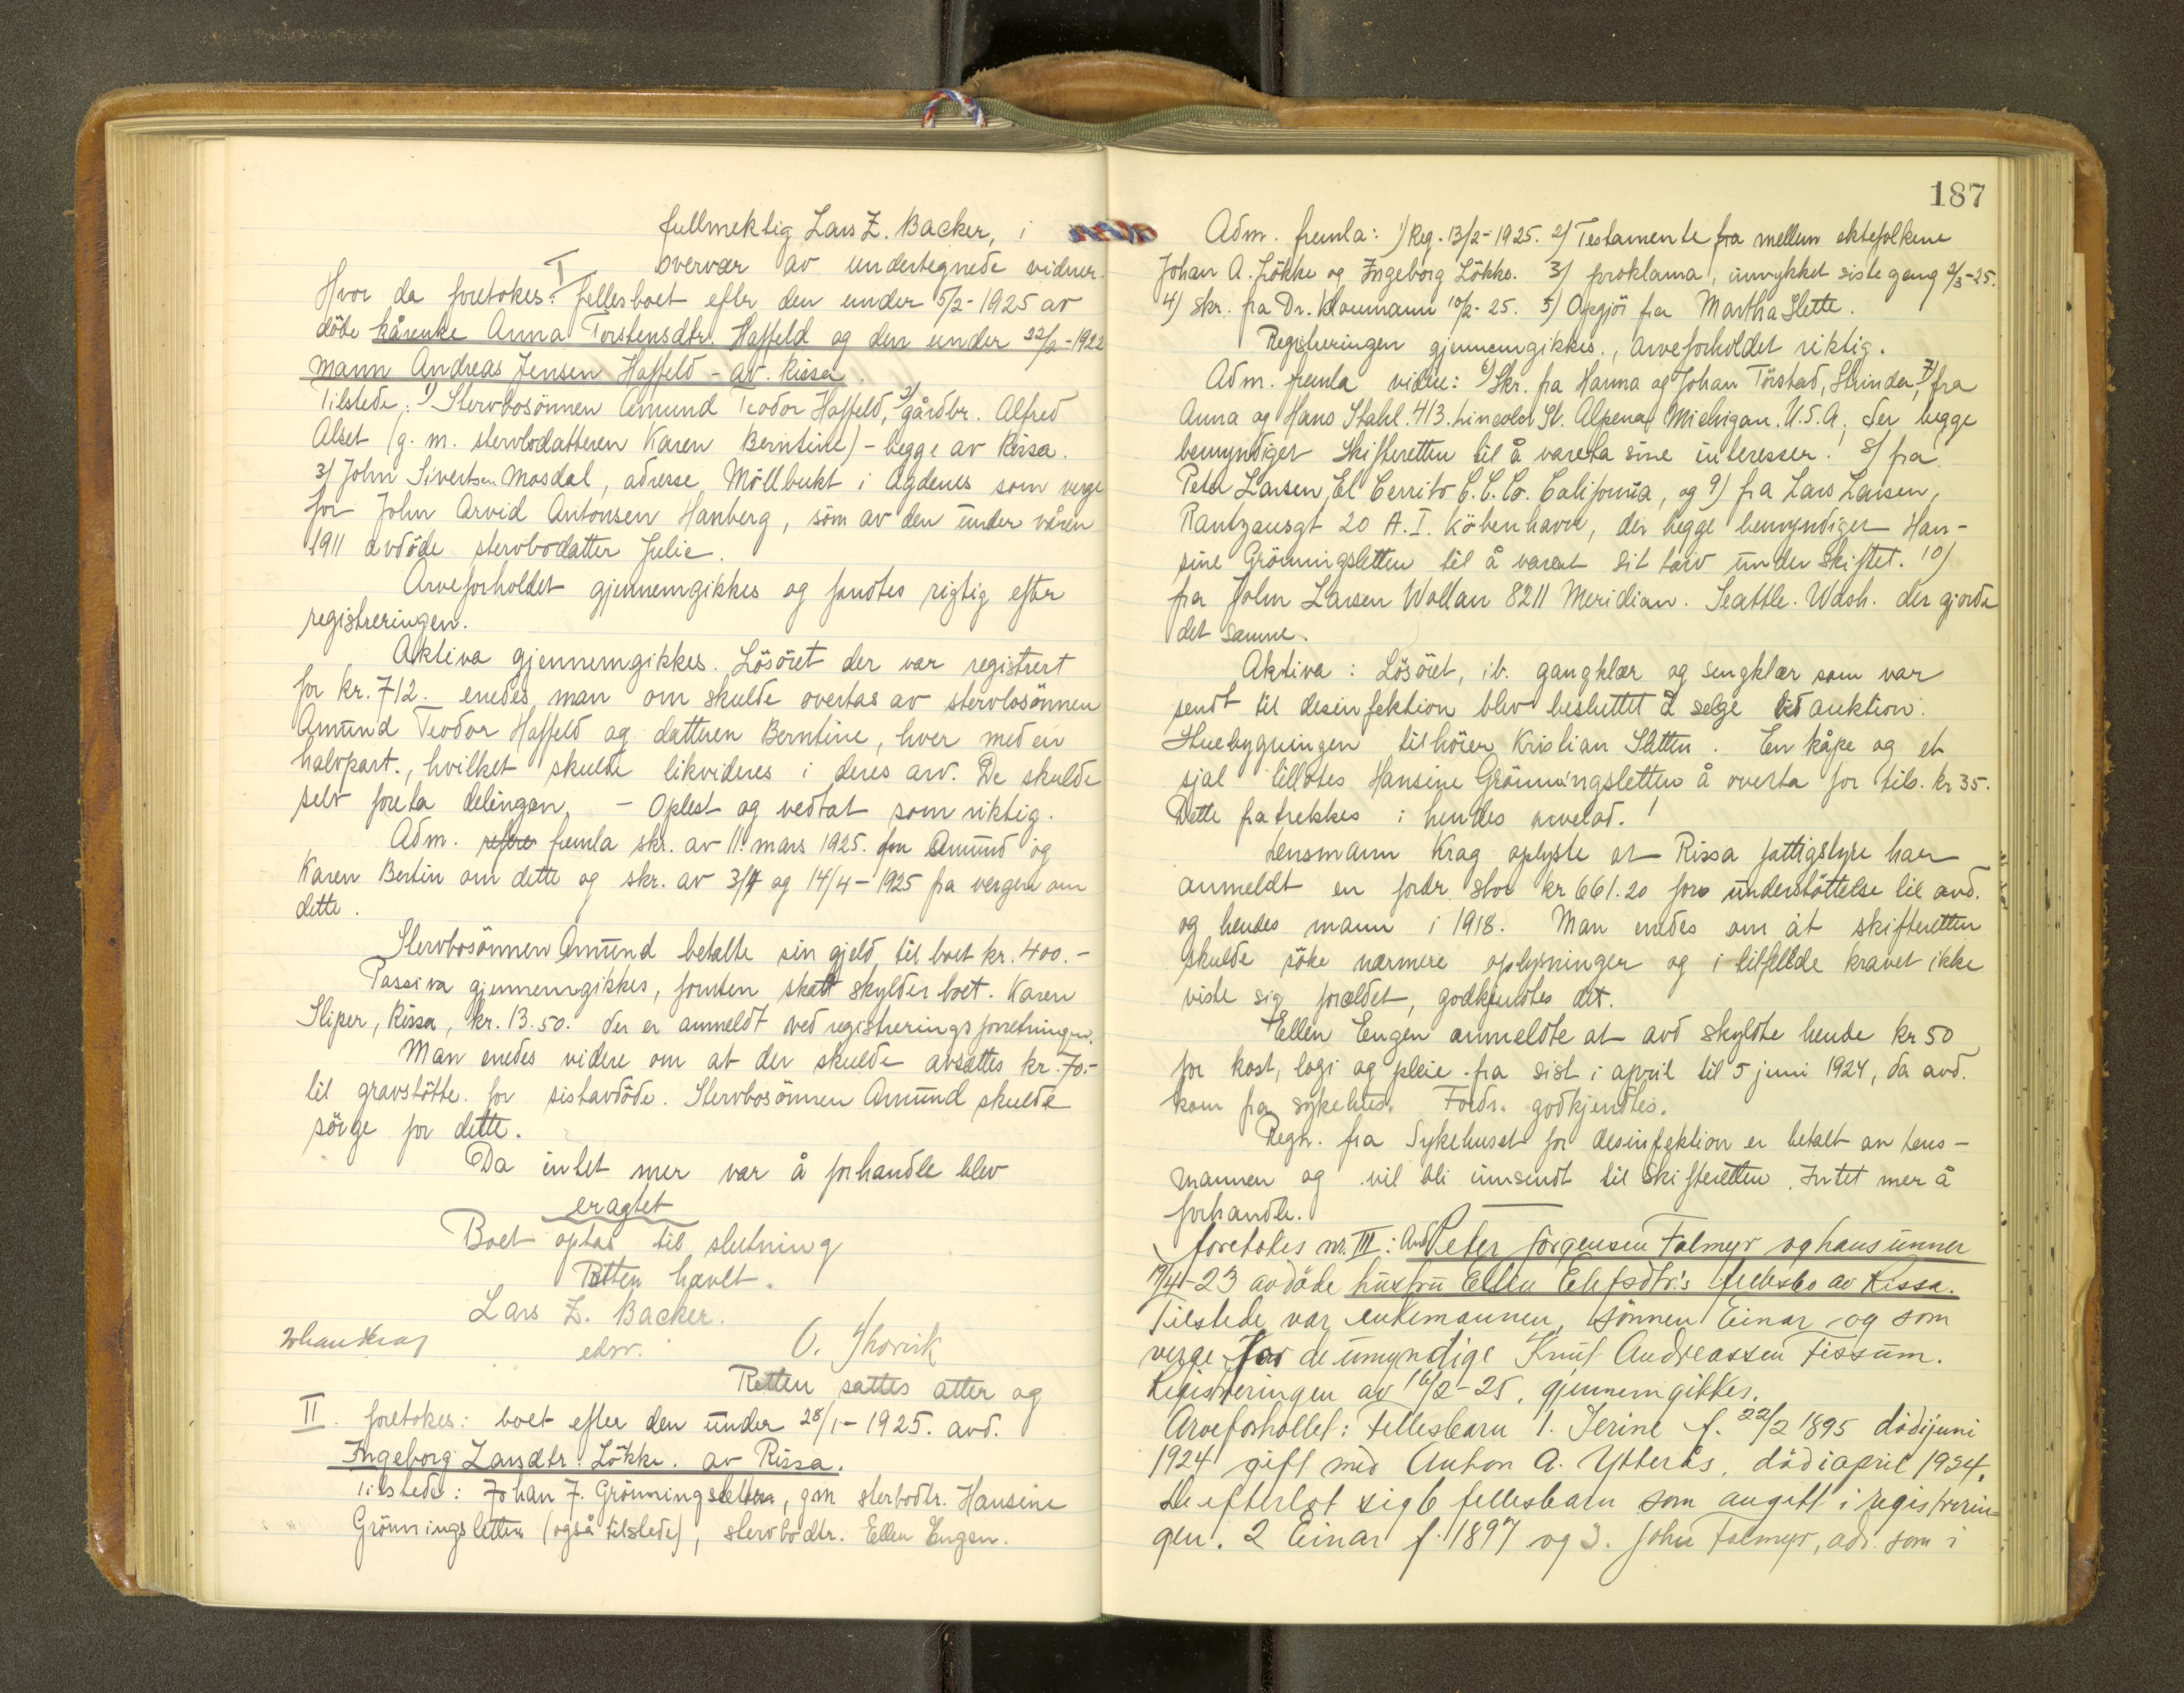 fullmektig Lars Z. Backer, i
overvær av undertegnede vidner.
I
Hvor da foretokes: fellesboet efter den under 5/2-1925 av
döde kårenke Anna Torstensdtr. Haffeld og den under 22/2-1922
mann Andreas Jensen Haffeld - av. Rissa.
Tilstede: 1) Stervbosönnen Amund Teodor Haffeld, 2) gårdbr. Alfred
Alset (g. m. stervbodatteren Karen Berntine) - begge av Rissa.
3) John Sivertsen Mosdal, adresse Möllbukt i Agdenes som verge
for John Arvid Antonsen Hanberg, sön av den under våren
1911 avdöde stervbodatter Julie.
Arveforholdet gjennemgikkes og fandtes rigtig efter
registreringen.
Aktiva gjennemgikkes. Lösöret der var registrert
for kr. 712. enedes man om skulde overtas av stervbosönnen
Amund Teodor Haffeld og datteren Berntine, hver med en
halvpart., hvilket skulde likvideres i deres arv. De skulde
selv foreta delingen, - Oplest og vedtat som riktig.
Adm. refere fremla skr. av 11. mars 1925. fra Amund og
Karen Bertin om dette og skr. av 3/4 og 14/4-1925 fra vergen om
dette.
Stervbosönnen Amund betalte sin gjeld til boet kr. 400.-
Passiva gjennemgikkes, foruten skatt skylder boet. Karen
Sliper, Rissa, kr. 13.50. der er anmeldt ved registreringsforretningen.
Man enedes videre om at der skulde avsættes kr. 70.-
til gravstötte. for sistavdöde. Stervbosönnen Amund skulde
sörge for dette.
Da intet mer var å forhandle blev
eragtet
Boet optas til slutning
Retten hævet.
Lars Z. Backer.
Johan Krag edsv. O. Skorvik
Retten sattes atter og
II. foretokes: boet efter den under 28/1-1925. avd.
Ingeborg Larsdtr. Lökke. av Rissa.
Tilstede: Johan J. Grönningsletten, gm sterbodtr. Hansine
Grönningsletten (også tilstede), stervbodtr. Ellen Engen.
187
Adm. fremla: 1) Reg. 13/2-1925. 2) Testamente fra mellem ektefolkene
Johan A. Lökke og Ingeborg Lökke. 3) proklama, innrykket siste gang 2/3-25.
4) Skr. fra Dr. Naumann 10/2-25. 5) Opgjör fra Martha Slette.
Registreringen gjennemgikkes., arveforholdet riktig.
Adm. fremla videre: 6) Skr. fra Hanna og Johan Törstad, Strinda, 7) fra
Anna og Hans Stahl. 413. Lincoln St. Alpena Michigan. U.S.A. der begge
bemyndiget Skifteretten til å vareta sine interesser. 8) fra
Peter Larsen, El Cerrito C.C. Co. California, og 9) fra Lars Larsen,
Rantzausgt 20 A. I. Köbenhavn, der begge bemyndiget Han-
sine Grönningsletten til å vareta sit tarv under skiftet. 10)
fra John Larsen Wollan 8211 Meridian. Seattle. Wash. der gjorde
det samme.
Aktiva: Lösöret, ib. gangklær og sengklær som var
sendt til desinfektion blev besluttet å selge ved auktion.
Stuebygningen tilhörer Kristian Sletten. En kåpe og et
sjal tillotes Hansine Grönningsletten å overta for tils. kr 35.
Dette fratrekkes i hendes arvelod.
Lensmann Krag oplyste at Rissa fattigstyre har
anmeldt en fordr. stor kr 661.20 for understöttelse til avd.
og hendes mann i 1918. Man enedes om at skifteretten
skulde söke nærmere oplysninger og i tilfelde kravet ikke
viste sig foreldet, godkjendtes det.
Ellen Engen anmeldte at avd skyldte hende kr 50
for kost, logi og pleie fra sist i april til 5 juni 1924, da avd.
kom fra sykehus. Fordr. godkjendtes.
Regn. fra Sykehuset for desinfektion er betalt av lens-
mannen og vil bli innsendt til Skifteretten. Intet mer å
forhandle.
foretokes nr. III: And Peter Jörgensen Falmyr og hans unner
19/4-23 avdöde husfru Ellen Elefsdtr.'s fellesbo av Rissa.
Tilstede var enkemannen, sönnen Einar og som
verge for de umyndige Knut Andreassen Fissum.
Registreringen av 16/2-25, gjennemgikkes.
Arveforholdet: Fellesbarn 1. Jerine f. 22/2 1895 död i juni
1924 gift med Anton A. Ytterås, död i april 1924.
De efterlot sig 6 fellesbarn som angitt i registrerin=
gen. 2 Einar f. 1897 og 3. John Falmyr, adr. som i